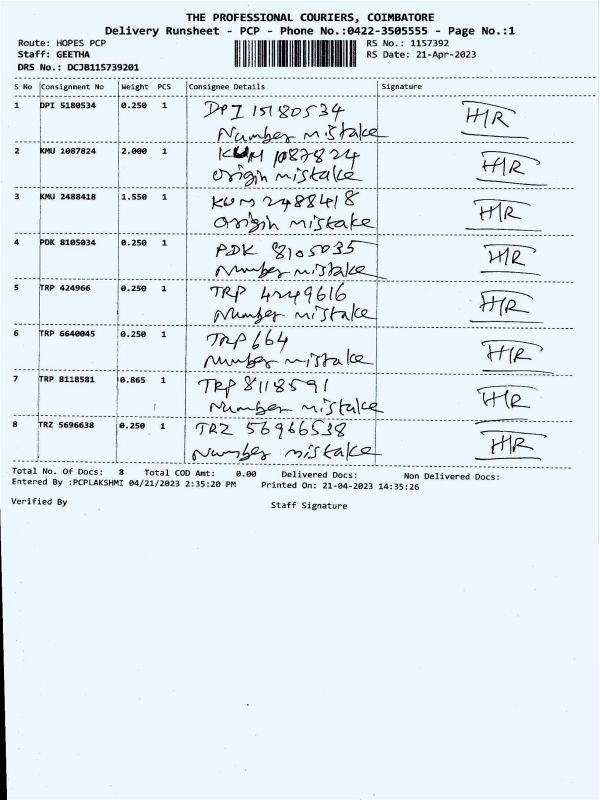 THE PROFESSIONAL COURIERS, COIMBATORE
Delivery Runsheet - PCP - Phone No.:0422-3505555 - Page No.:1
Route: HOPES PCP RS No.: 1157392
Staff: GEETHA RS Date: 21-Apr-2023
DRS No.: DCJB115739201
S No Consignment No Weight PCS Consignee Details Signature
1 DPI 5180534 0.250 1 DPI 15180534 HR
Number mistake
2 KMU 1087824 2.000 1 KUM 1087824 HR
Origin mistake
3 KMU 2488418 1.550 1 KUM 2488418 HR
Origin mistake
4 PDK 8105034 0.250 1 PDK 8105035 HR
Number mistake
5 TRP 424966 0.250 1 TRP 4249616 HR
Number mistake
6 TRP 6640045 0.250 1 TRP 664 HR
Number mistake
7 TRP 8118581 0.865 1 TRP 8118591 HR
Number mistake
8 TRZ 5696638 0.250 1 TRZ 56966538 HR
Number mistake
Total No. Of Docs: 8 Total COD Amt: 0.00 Delivered Docs: Non Delivered Docs:
Entered By :PCPLAKSHMI 04/21/2023 2:35:20 PM Printed On: 21-04-2023 14:35:26
Verified By Staff Signature